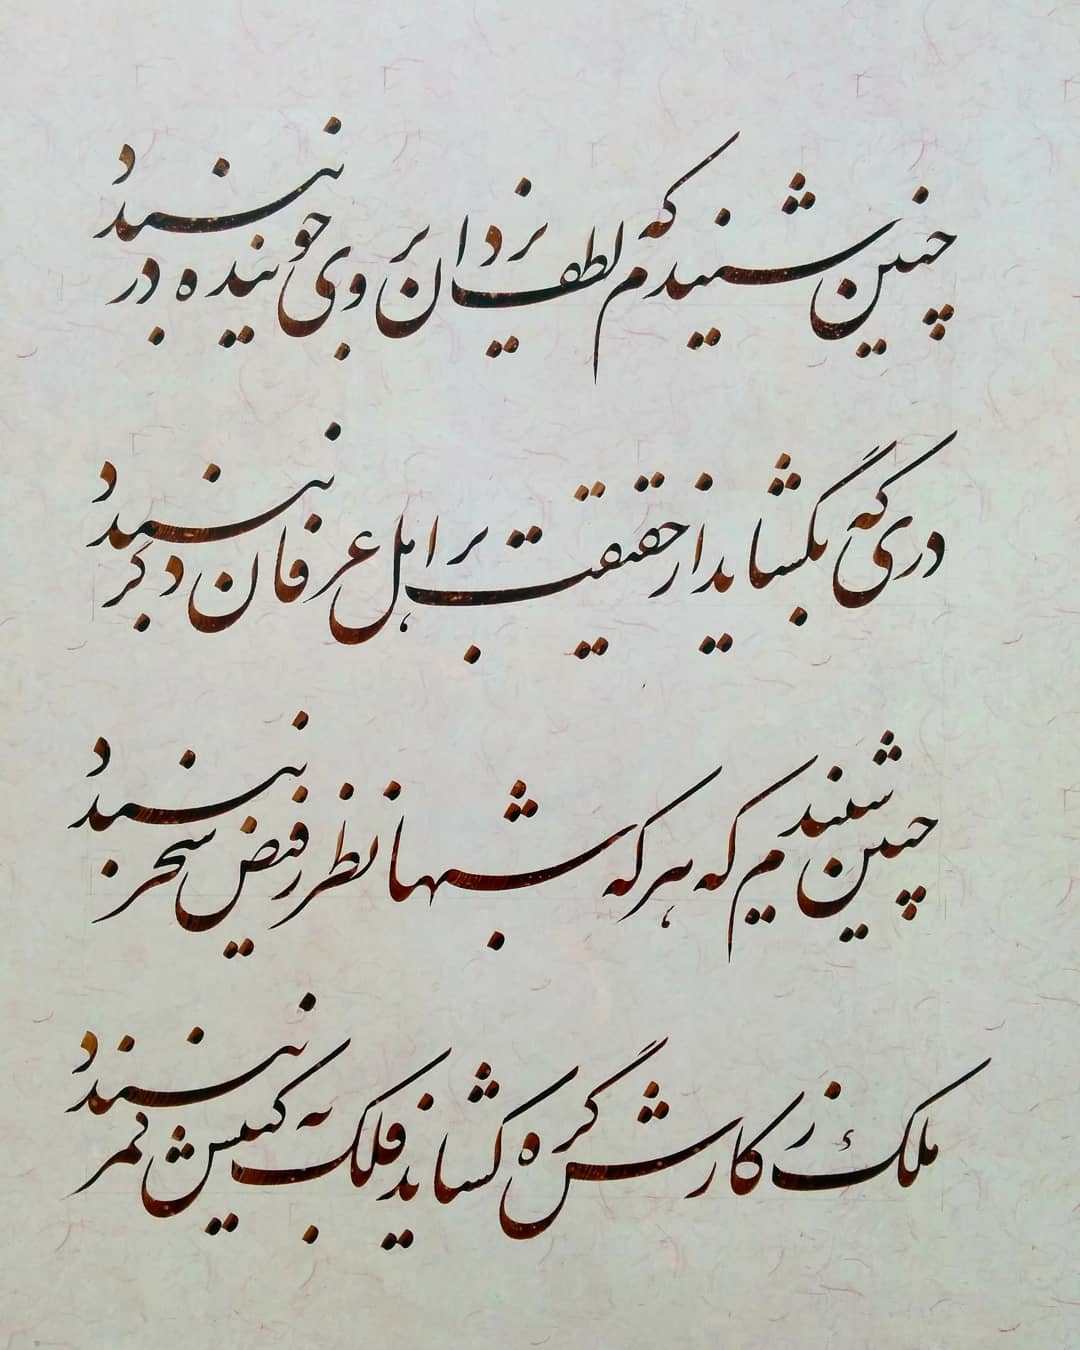 چنین شنیدم که لطف یزدان بروی جوینده در نبندد
دری که بگشاید از حقیقت بر اهل عرفان دگر نبندد
چنین شنیدم که هر که شبها نظر ز فیض سحر نبندد
ملک ز کارش گره گشاید فلک به کینش کمر نبندد